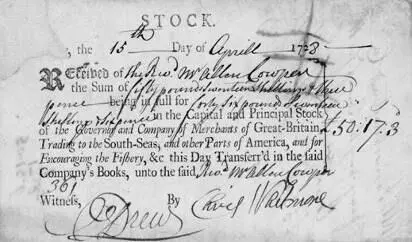 STOCK.
, the 15th Day of Aprill 1728
Received of the Revd. Mr Allen Cowper
the Sum of fifty pounds Seventeen Shillings & three
pence being in full for Forty Six pounds Seventeen
Shillings & Six pence in the Capital and Principal Stock
of the Governor and Company of Merchants of Great-Britain
Trading to the South-Seas, and other Parts of America, and for
Encouraging the Fishery, &c this Day Transferr'd in the said
Company's Books, unto the said Revd. Mr Allen Cowper
£50:17:3
361
Witness, By
Drew